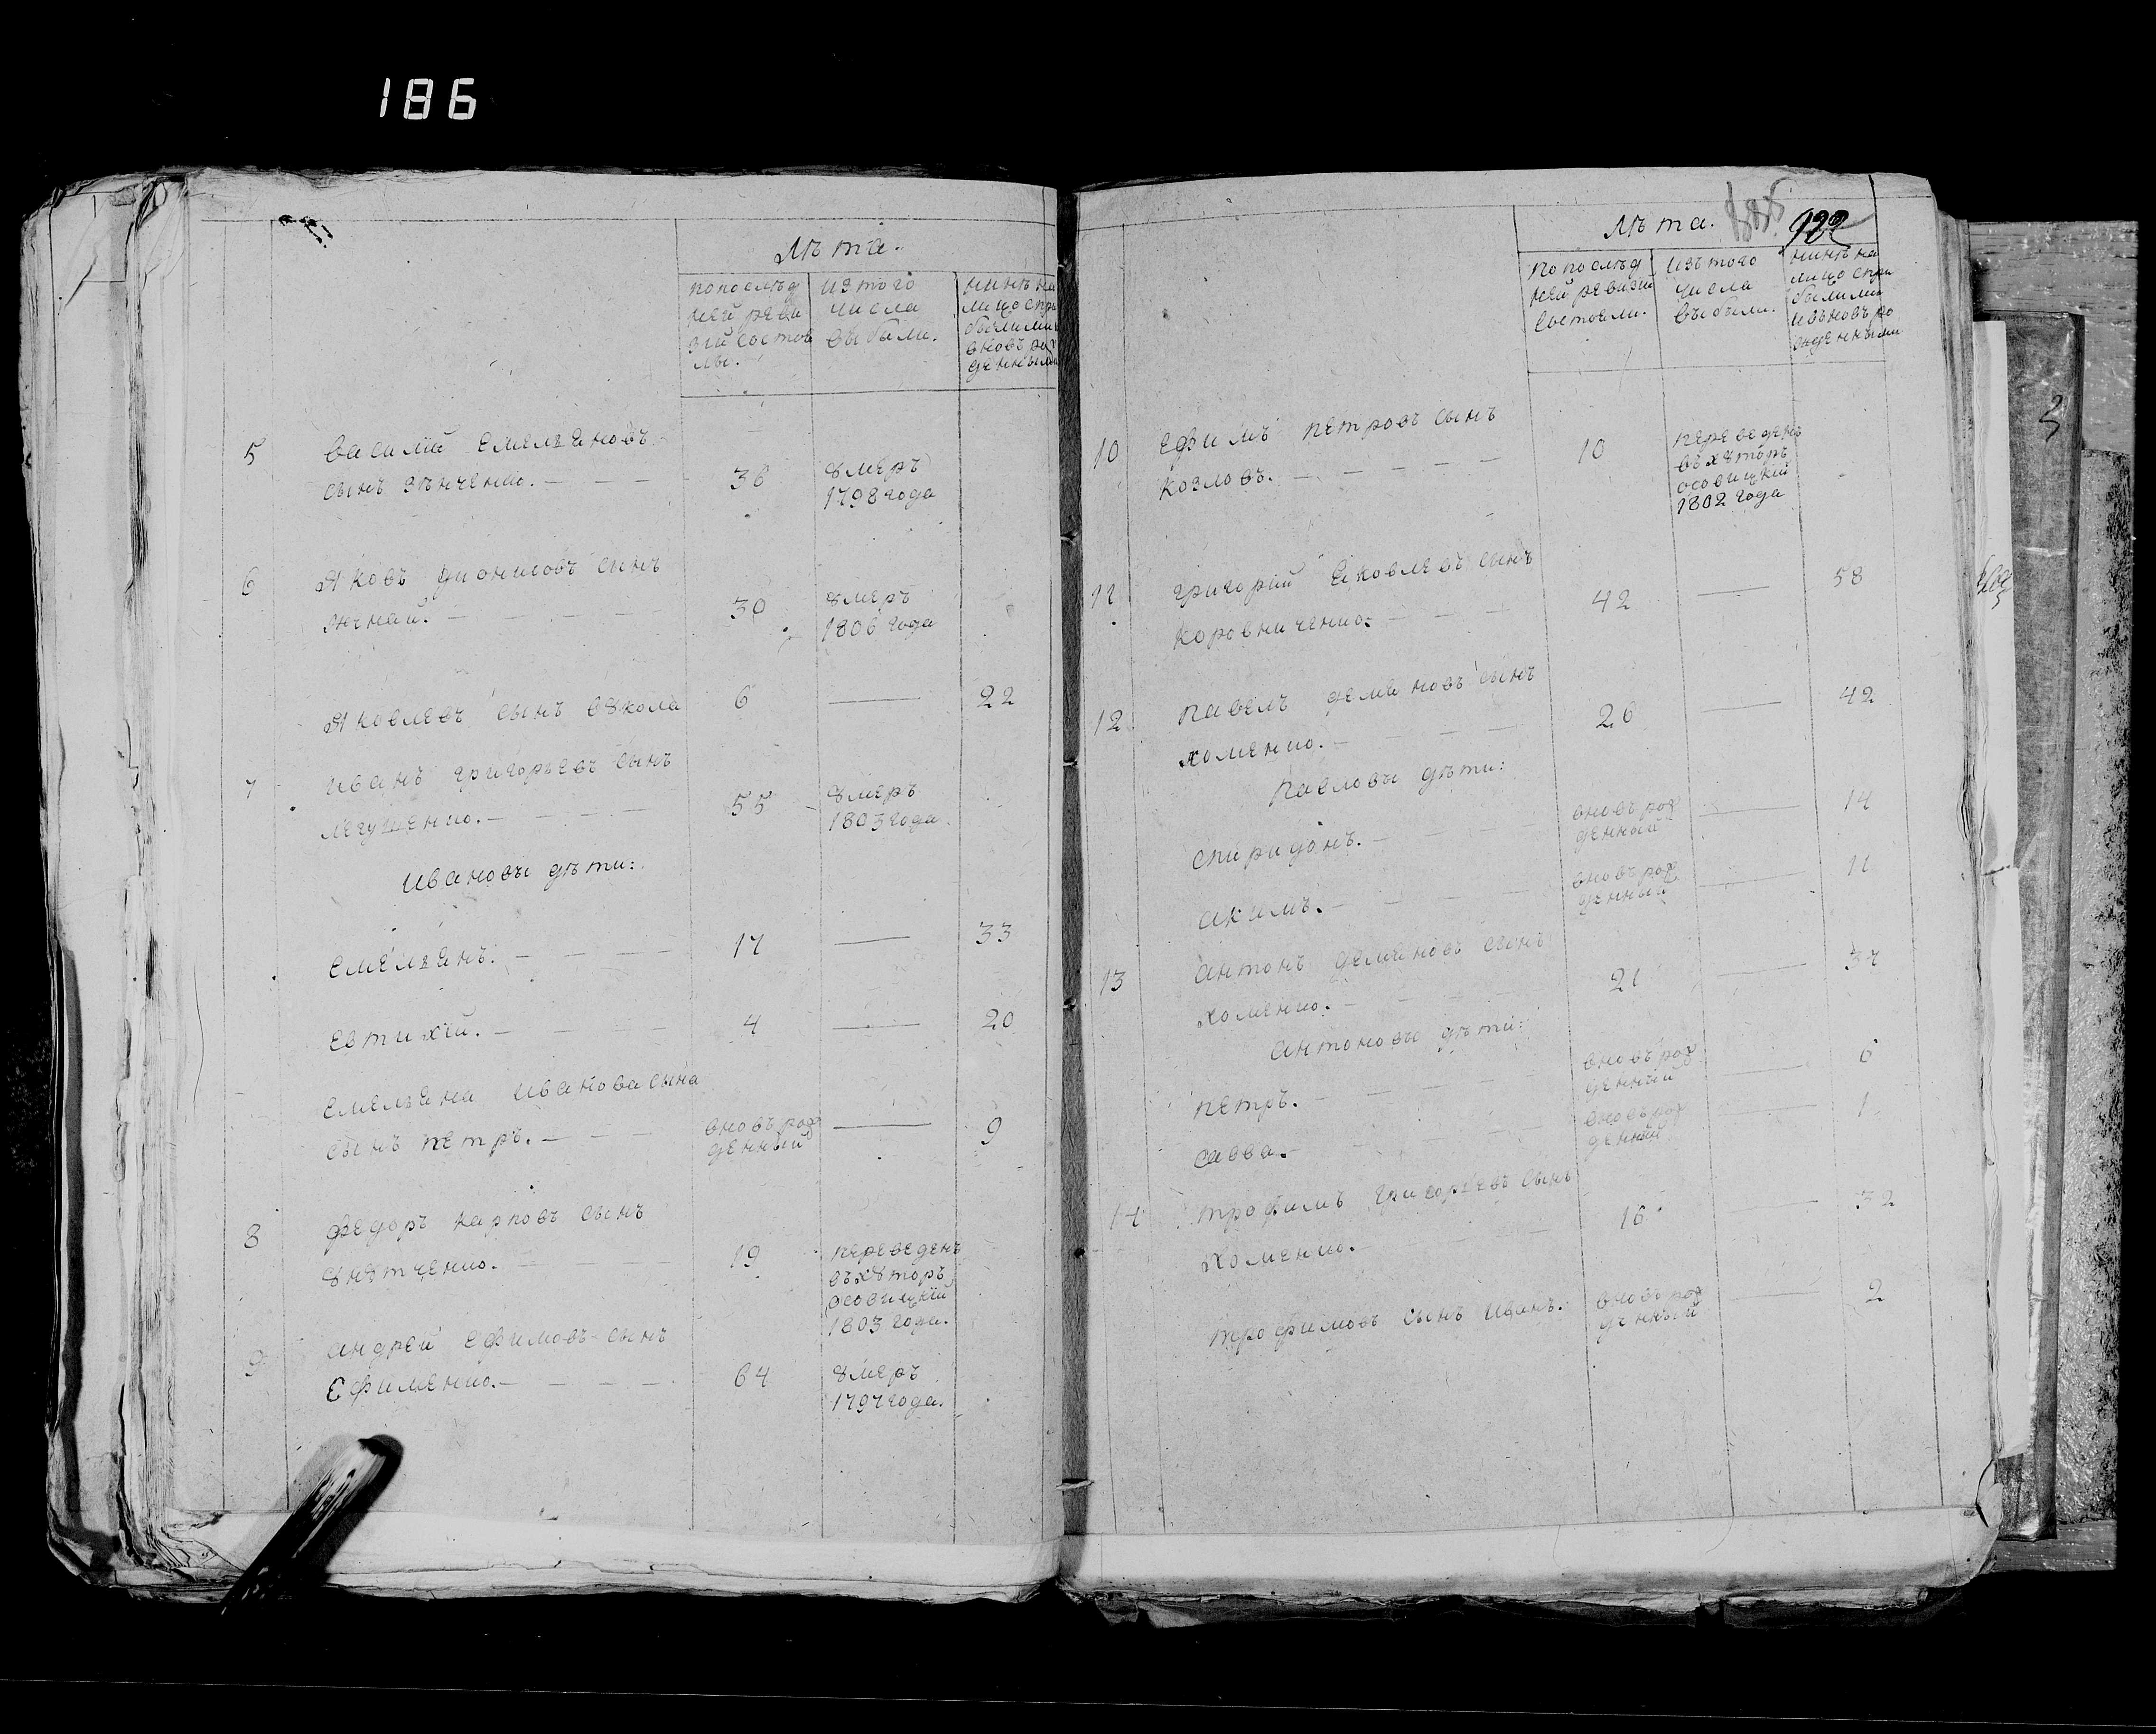 186
Лѣта.
по послѣд
ней реви
зіи состоя
ли.
из того
числа
выбыли.
нинѣ на
лицо спри
былыми
вновь рож
денными
5 василий Емельяновъ
сынъ зѣнченко. 36 умеръ
1798 года
6 Яковъ дионисовъ сынъ
30 умеръ
1806 года
Яковлевъ сынъ вукола 6 22
7 иванъ григорьевъ сынъ
легушенко. 55 умеръ
1803 года
ивановы дѣти:
емельянъ. 17 33
евтихій. 4 20
емельяна иванова сына
сынъ петръ. вновь рож
денный 9
8 федоръ карповъ сынъ
унутченко. 19 переведенъ
въ хуторъ
осовицкій
1803 года.
9 андрей ефимовъ сынъ
Ефименко. 64 умеръ
1797 года.
Лѣта.
122
По послѣд
ней ревизіи
состояли.
изъ того
числа
въыбыли.
нинѣ на
лицо спри
былыми
и вьновь ро
жденными
10 Ефимъ петровъ сынъ
козловъ. 10 переведенъ
въ хуторъ
осовицкій
1802 года
11 григорій яковлевъ сынъ
коровниченко. 42 58
12 павелъ демяновъ сынъ
хоменко. 26 42
Павловы дѣти:
спиридонъ. вновь рож
денный 14
акимъ. вновь рож
денный 11
13 антонъ демяновъ сынъ
хоменко. 21 37
антоновы дѣти:
петръ. вновь рож
денный 6
савва. вновь рож
денный 1
14 трофимъ григорьевъ сынъ
хоменко. 16 32
трофимовъ сынъ иванъ. вновь рож
денный 2